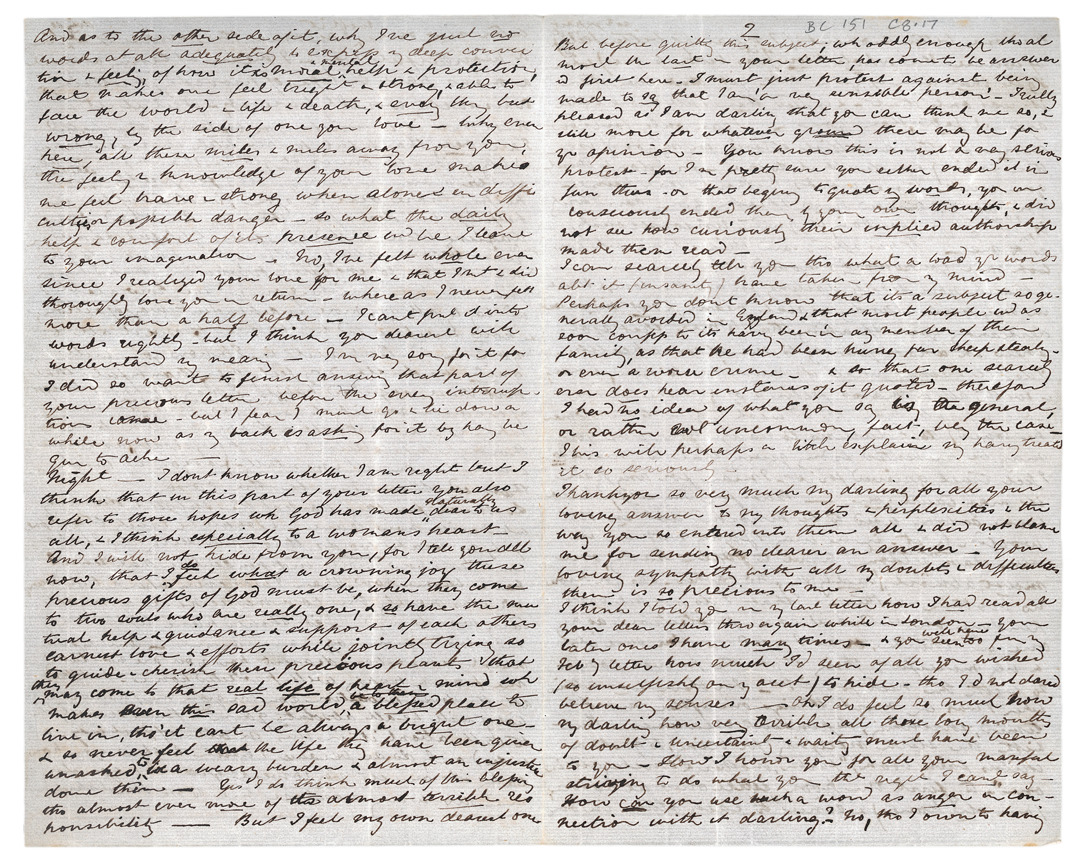 And as to the other side of it, why I've just no
words at all adequate to express my deep convic
tion & feeling of how it is moral, & mental help & protection,
that makes one feel bright & strong, & able to
face the world & life & death, & every thing but
wrong, by the side of one you love - Why even
here, all these miles & miles away from you,
the feeling & knowledge of your love makes
me feel brave & strong when alone & in diffi
culties, or possible danger - so what the daily
help & comfort of its presence wd be, I leave
to your imagination - No, I've felt whole ever
since I realized your love for me & that I must & did
thoroughly love you in return - whereas I never felt
more than a half before - I can't put it into
words rightly - but I think you dearest will
understand my meaning - I'm very sorry for it for
I did so want to finish answering that part of
your precious letter before the every interrup-
tions came - but I fear I must go & lie down a
while now as my back is asking for it by having be
gun to ache -
Night - I don't know whether I am right but I
think that in this part of your letter you also
refer to those hopes wh God has made naturally dear to us
all, & I think especially to a woman's heart -
And I will not hide from you, for I tell you all
now, that I do feel what a crowning joy these
precious gifts of God must be, when they come
to two souls who are really one, & so have the mu
tual help & guidance & support of each others
earnest love & efforts while jointly trying so
to guide & cherish these precious plants that
they may come to that real life of heart & mind wh
makes even this sad world, be to them a blessed place to
live in, tho' it cant be always a bright one -
& so never feel that the life they have been given
unasked, to be a weary burden & almost an injustice
done them - Yes I do think much of this blessing
tho almost ever more of its almost terrible res
ponsibility - But I feel my own dearest one
2
BC 151 CB.17
But before quitting this subject, wh oddly enough tho al
most the last in your letter, has come to be answer
d first here - I must just protest against being
made to say that I am 'a very sensible person' - Really
pleased as I am darling that you can think me so, &
still more for whatever ground there may be for
yr opinion - You know this is not a very serious
protest - for I'm pretty sure you either ended it in
fun thus - or that beginning to quote my words, you un
consciously ended them by your own thoughts, & did
not see how curiously their implied authorship
made them read
I can scarcely tell you tho what a load yr words
abt it (insanity) have taken from my mind -
Perhaps you don't know that its a subject so ge-
nerally avoided in England & that most people wd as
soon confess to its having been in any member of their
family, as that he had been hung for sheep stealing -
or even a worse crime - & so that one scarcely
ever does hear instances of it quoted - therefore
I had no idea of what you say being the general,
or rather not uncommon, fact, being the case
This with perhaps a little explains my having treated
it so seriously -
Thank you so very much my darling for all your
loving answer to my thoughts & perplexities & the
way you so entered into them all & did not blame
me for sending no clearer an answer - Your
loving sympathy with all my doubts & difficulties
them is so precious to me -
I think I told you in my last letter how I had read all
your dear letters thro again while in London - your
later ones I have many times - & you will have seen too from my
Feby letter how much I'd seen of all you wished
(so unselfishly on my acct) to hide - tho I'd not dared
believe my senses - oh I do feel so much how
my darling how very terrible all those long months
of doubt & uncertainty & waiting must have been
to you - How I honor you for all your manful
striving to do what you the right I cant say -
How can you use such a word as anger in con-
nection with it darling? - No, tho I own to having